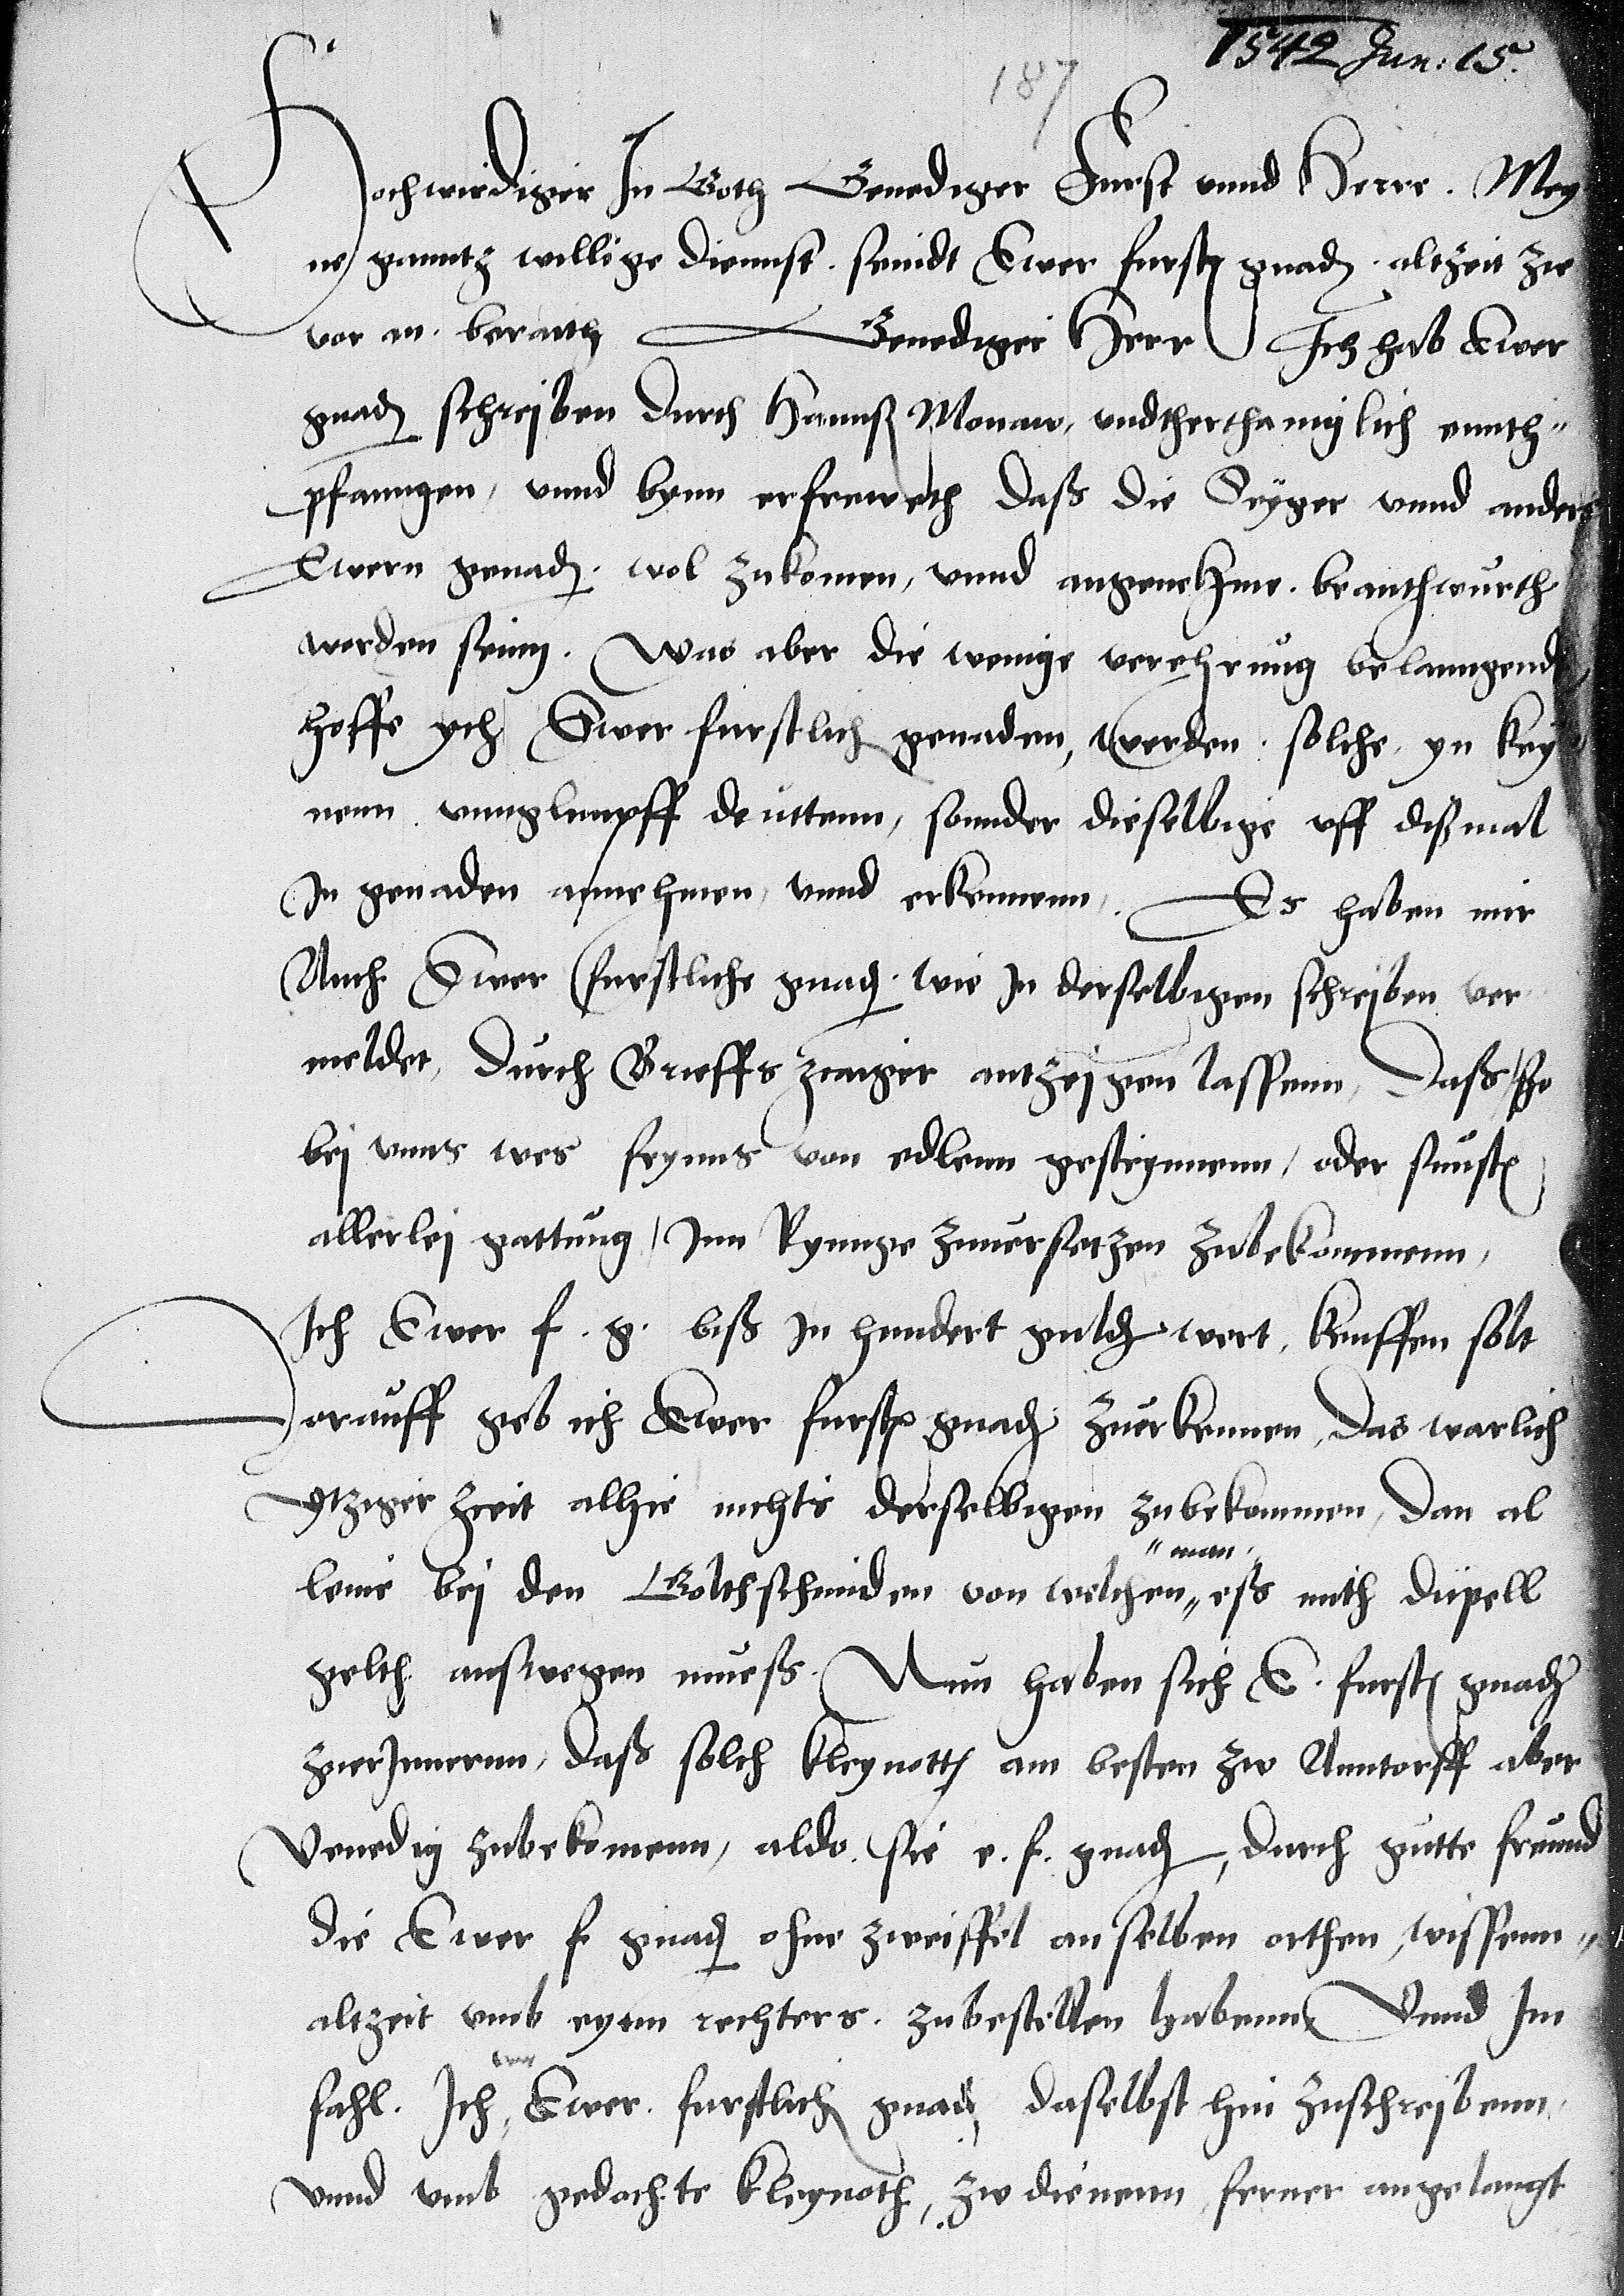 1542 Jun: 15.
187
Hochwirdiger In Goth Genediger Furst vnnd Herre. Mey
ne ganntz willige diennst. seindt Ewer furstl gnad. altzeit zw
vor an. beraith Genediger Herr Ich hab Ewer
gnad schreiben durch Hannß Monaw, vndtherthaniglich ennth
pfanngen, vnnd bynn erfreweth daß die Seyger vnnd anders
Ewern genad. wol zukomen, vnnd angenehme. beanthwurth
worden seinn. Was aber die wenige verehrung belanngend,
hoffe ych Ewer furstlich genaden, werden. solche. yn key
nenn vnnglimpff deuttenn, sonnder dieselbige vff dißmal
In genaden annehmen, vnnd erkennenn. Es haben mir
Auch Ewer furstliche gnad. wie In derselbigen schreiben ver
meldet, durch Brieffs zeiger antzeigen lassenn, Daß so
bei vnns wes feynns von edlenn gesteynnenn, oder sunst
allerlej gattung, Inn Rynnge zuuersetzen zubekommenn,
Ich Ewer f. g. biß In hundert guld wert, kauffen solt
Dorauff geb ich Ewer furstl gnad zuerkennen, das warlich
Ytziger Zeit alhie nichts derselbigen zubekommen, dan al
leine bej den Golthschmiden von welchen „ eß mith dupell
„ man
gelth außwegen mueß. Nun haben sich E. furstl gnad
zuerInnernn, daß solch kleynott am besten zw Anntorff aber
Venedig zubekomenn, aldo. sie e. f. gnad, durch gutte freund
die Ewer f gnad ohne zweiffel an selben orthen, wissenn „
altzeit vmb eynn rechters. zubestellen habenn, Vnnd Im
fahl. Ich, Ewer. furstlich gnad, daselbst hin zuschreibenn,
von
vnnd vmb gedochte kleynoth, zw dienenn ferner angelangt